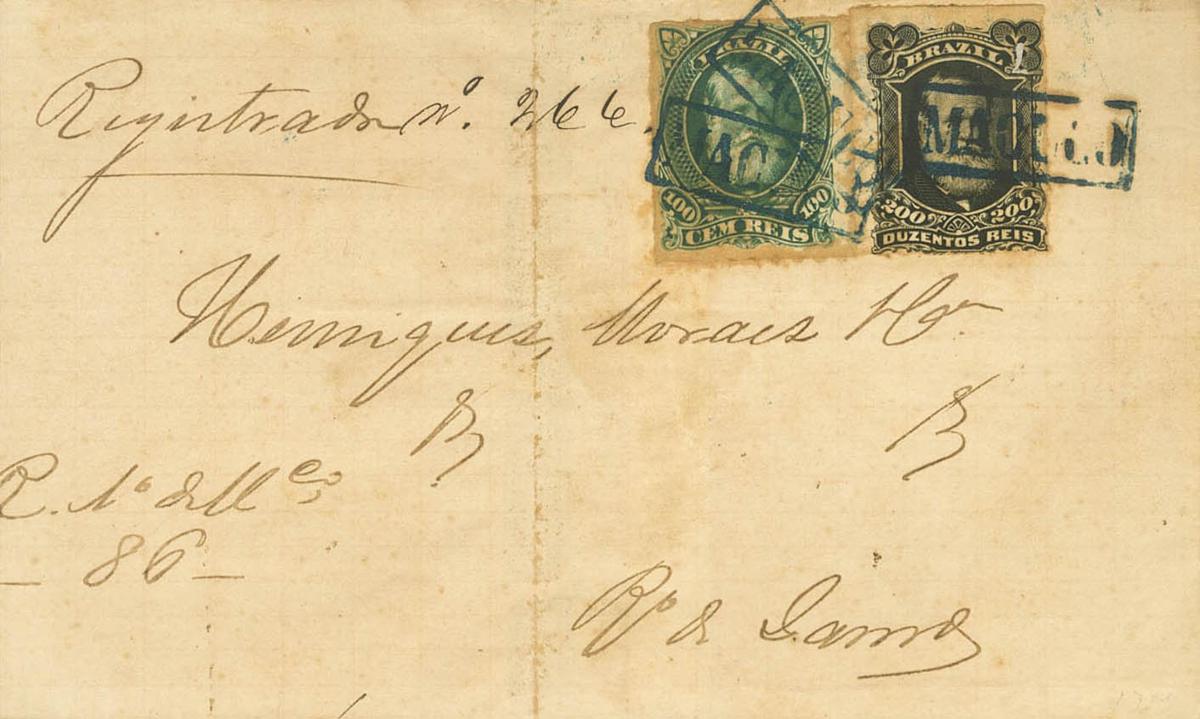 Registrado nº. 266.
BRAZIL
100 100
CEM REIS
BRAZIL
200 200
DUZENTOS REIS
Henriques, Moraes
R. 1º de Mço
86
Rº de